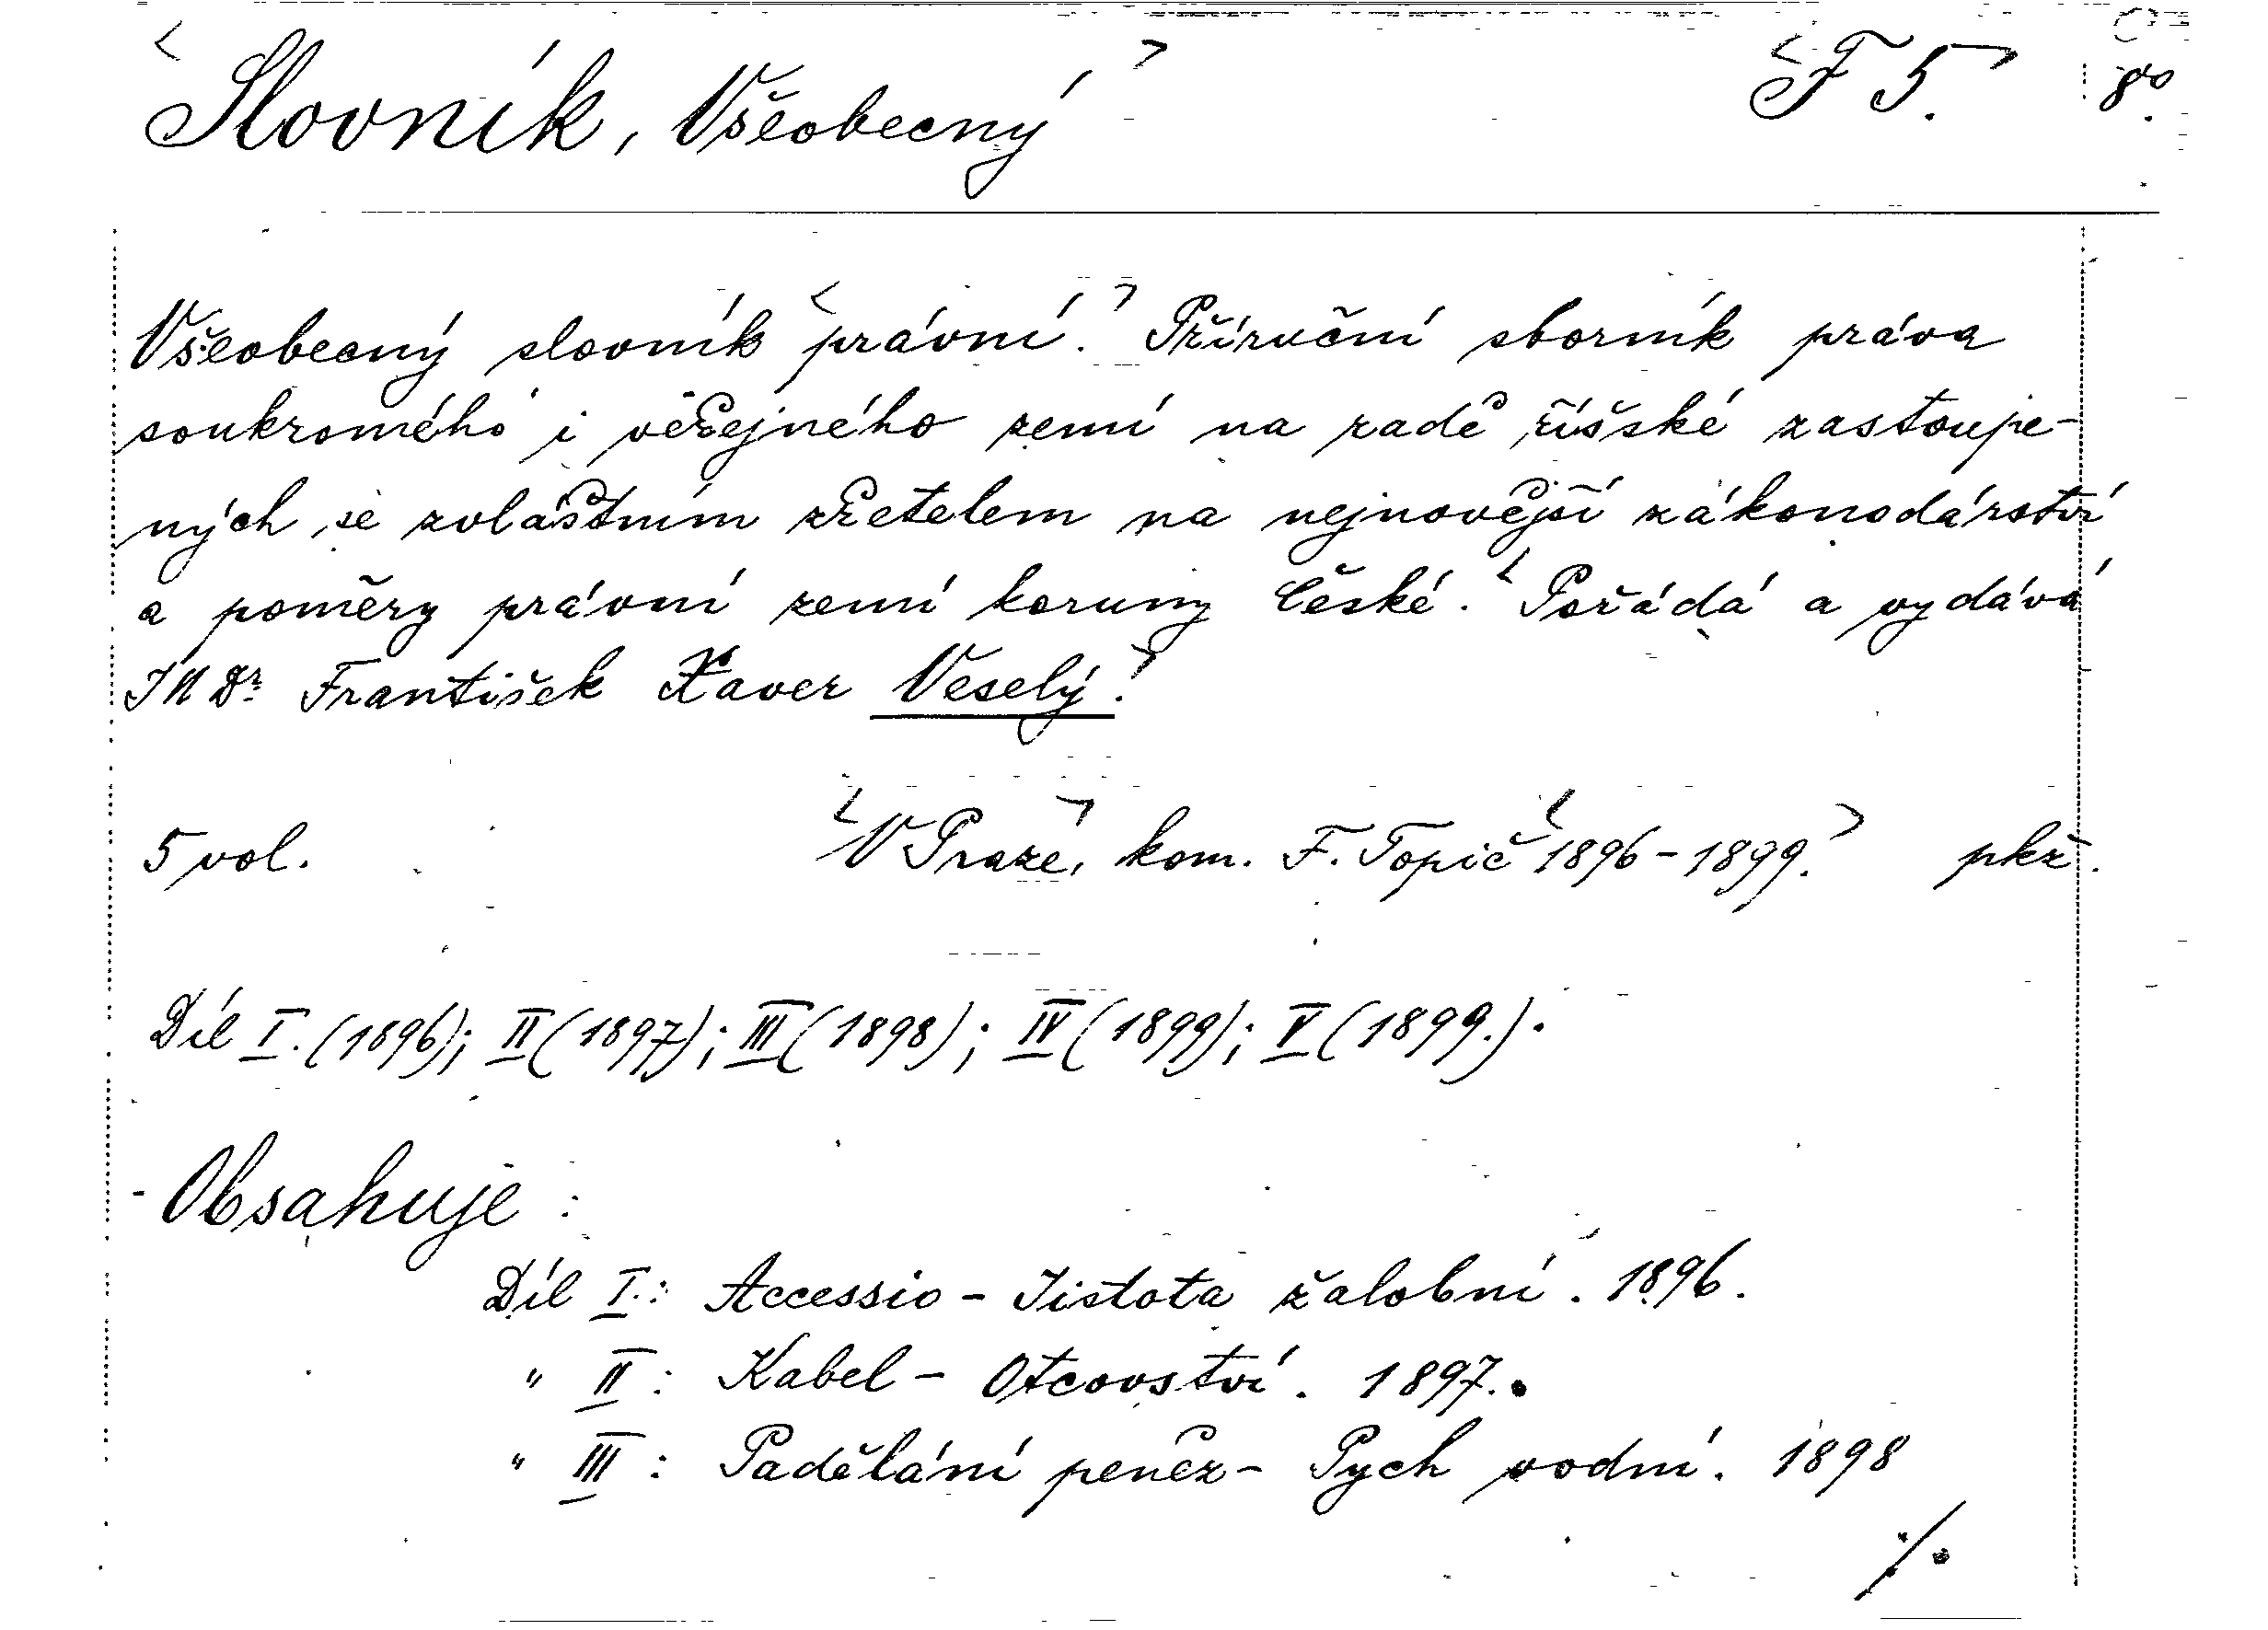 Slovník, Všeobecný F 5. 8°.
Všeobecný slovník právní. Příruční sborník práva
soukromého i veřejného zemí na radě říšské zastoupe-
ných se zvláštním zřetelem na nejnovější zákonodárství
a poměry právní zemí koruny České. Pořádá a vydává
JUDr. František Xaver Veselý.
5 vol. V Praze, kom. F. Topič 1896-1899. pkž.
Díl I. (1896); II (1897); III (1898); IV (1899); V (1899.).
Obsahuje:
Díl I.: Accessio - Jistota žalobní. 1896.
" II: Kabel - Otcovství. 1897.
" III: Padělání peněz - Pych vodní. 1898
./.